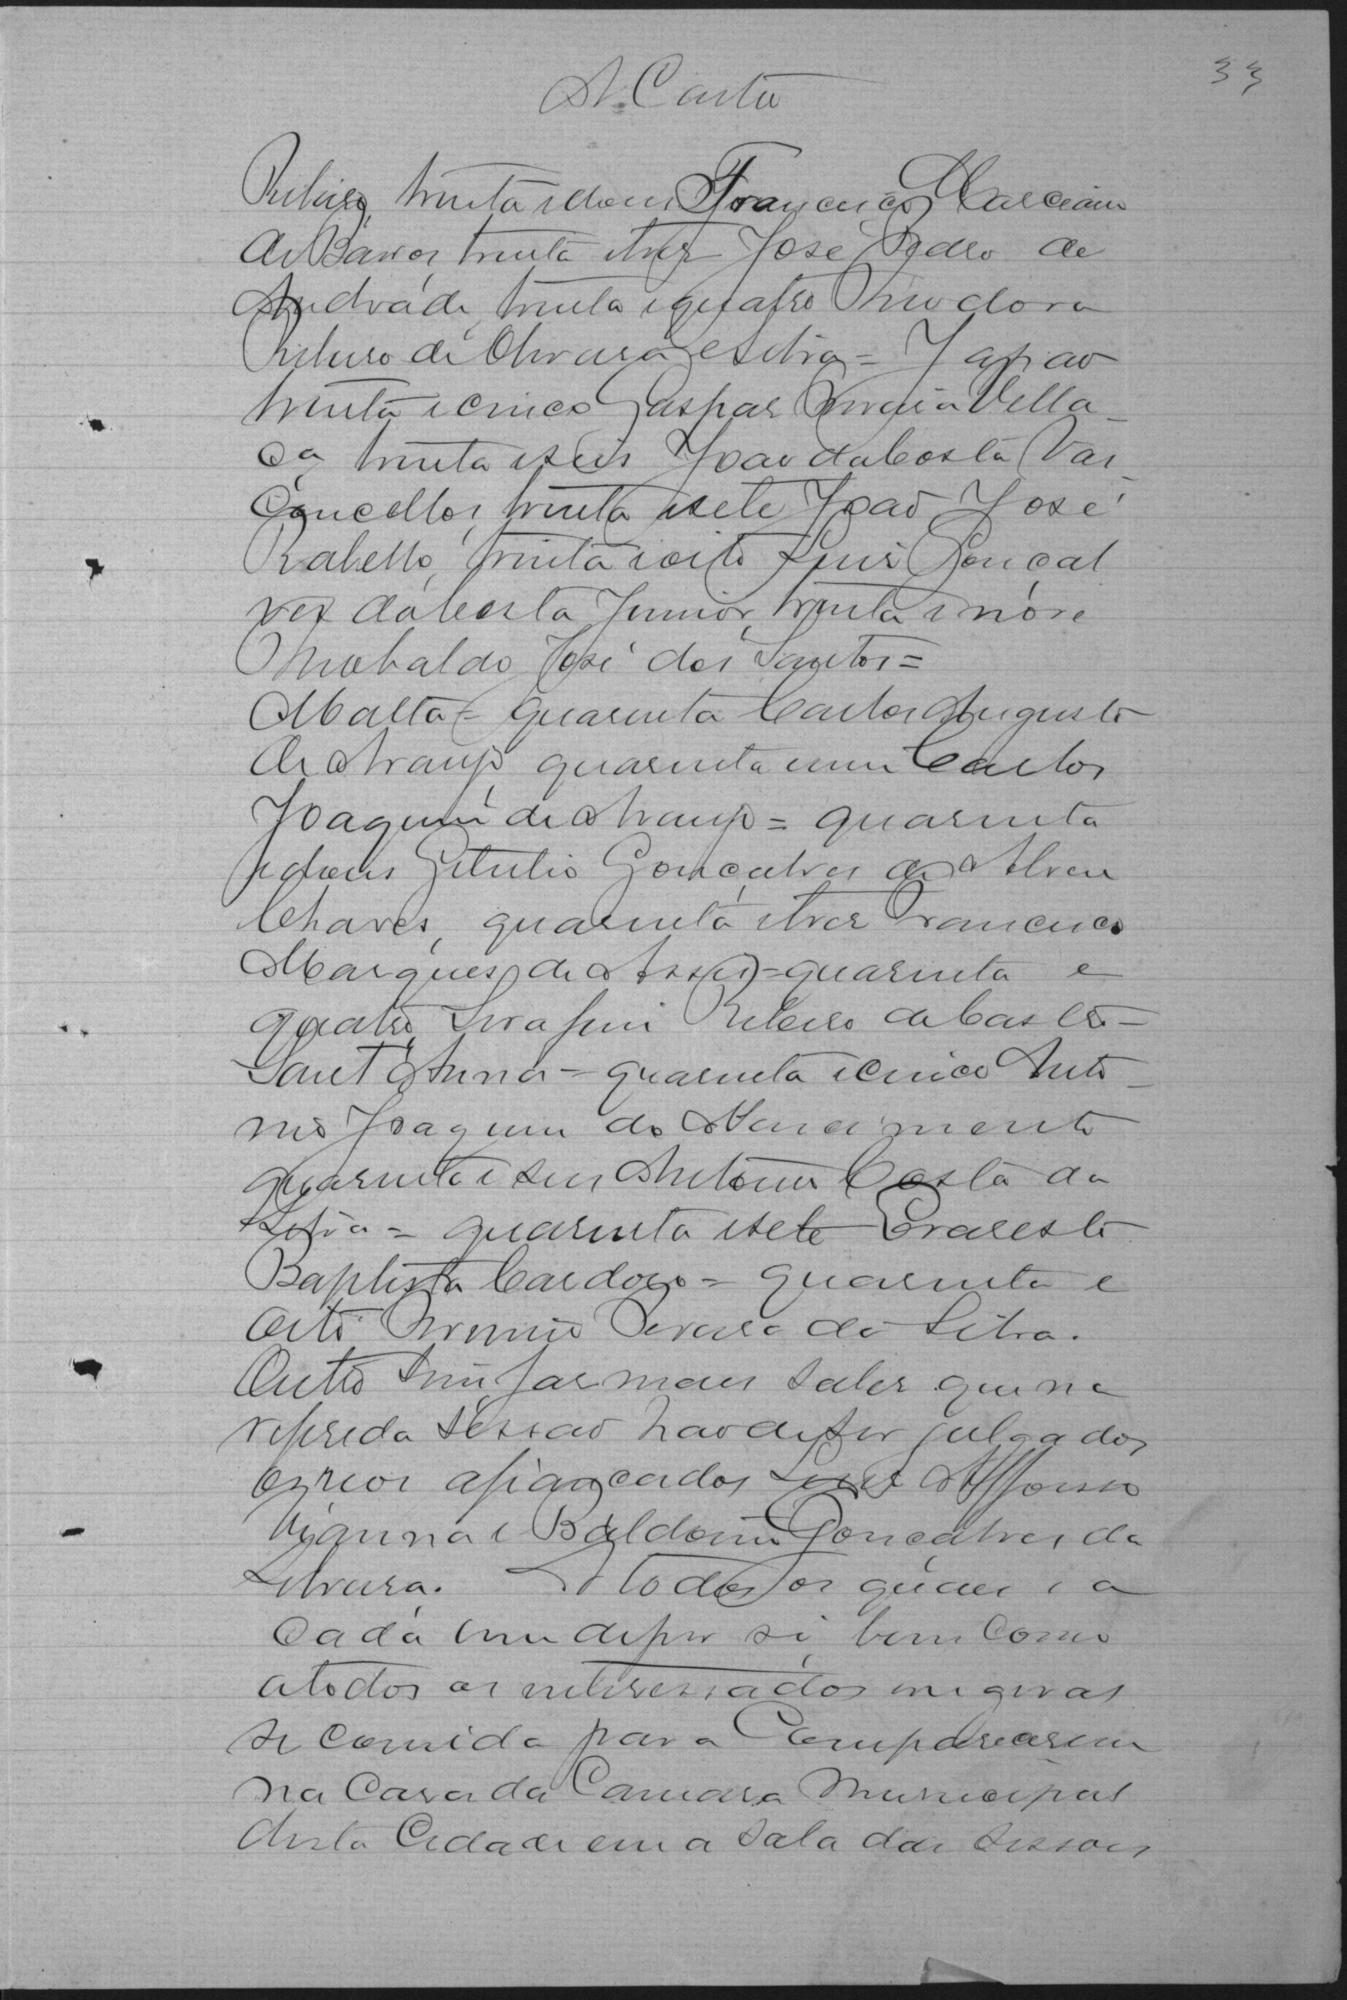 33
A. Costa
Ribeiro, trinta e dous Francisco Marciano
de Barros, trinta e tres José Pedro de
Andrade, trinta e quatro Theodoro
Ribeiro de Oliveira e Silva =
trinta e cinco Gaspar Villa-
ça trinta e seis Joao da Costa Vas-
concellos, trinta e sete Joao José
Rabello, trinta e oito Luis Gonçal
ves da Costa Junior, trinta e nove
Theobaldo José dos Santos =
Malta = quarenta Carlos Augusto
de Araujo, quarenta e um Carlos
Joaquim de Araujo = quarenta
e dous Getulio Gonçalves de Abreu
Chaves, quarenta e tres Francisco
Marques de Assis = quarenta e
quatro, Serafim Ribeiro de Castro =
Sant'Anna = quarenta e cinco Anto-
nio Joaquim do Nascimento
quarenta e seis Antonio Costa da
Silva = quarenta e sete Evaresto
Baptista Cardoso = quarenta e
oito Firmino Pereira da Silva.
Outro sim, faz mais saber que na
referida sessao hao de ser julgados
os reos afiançados Luis Affonso
Vianna e Baldoino Gonçalves da
Silveira. A todos os quaes e a
cada um de per si, bem como
a todos os interessados em geral
se convida para comparecerem
na Casa da Camara Municipal
desta Cidade em a sala das sessoes